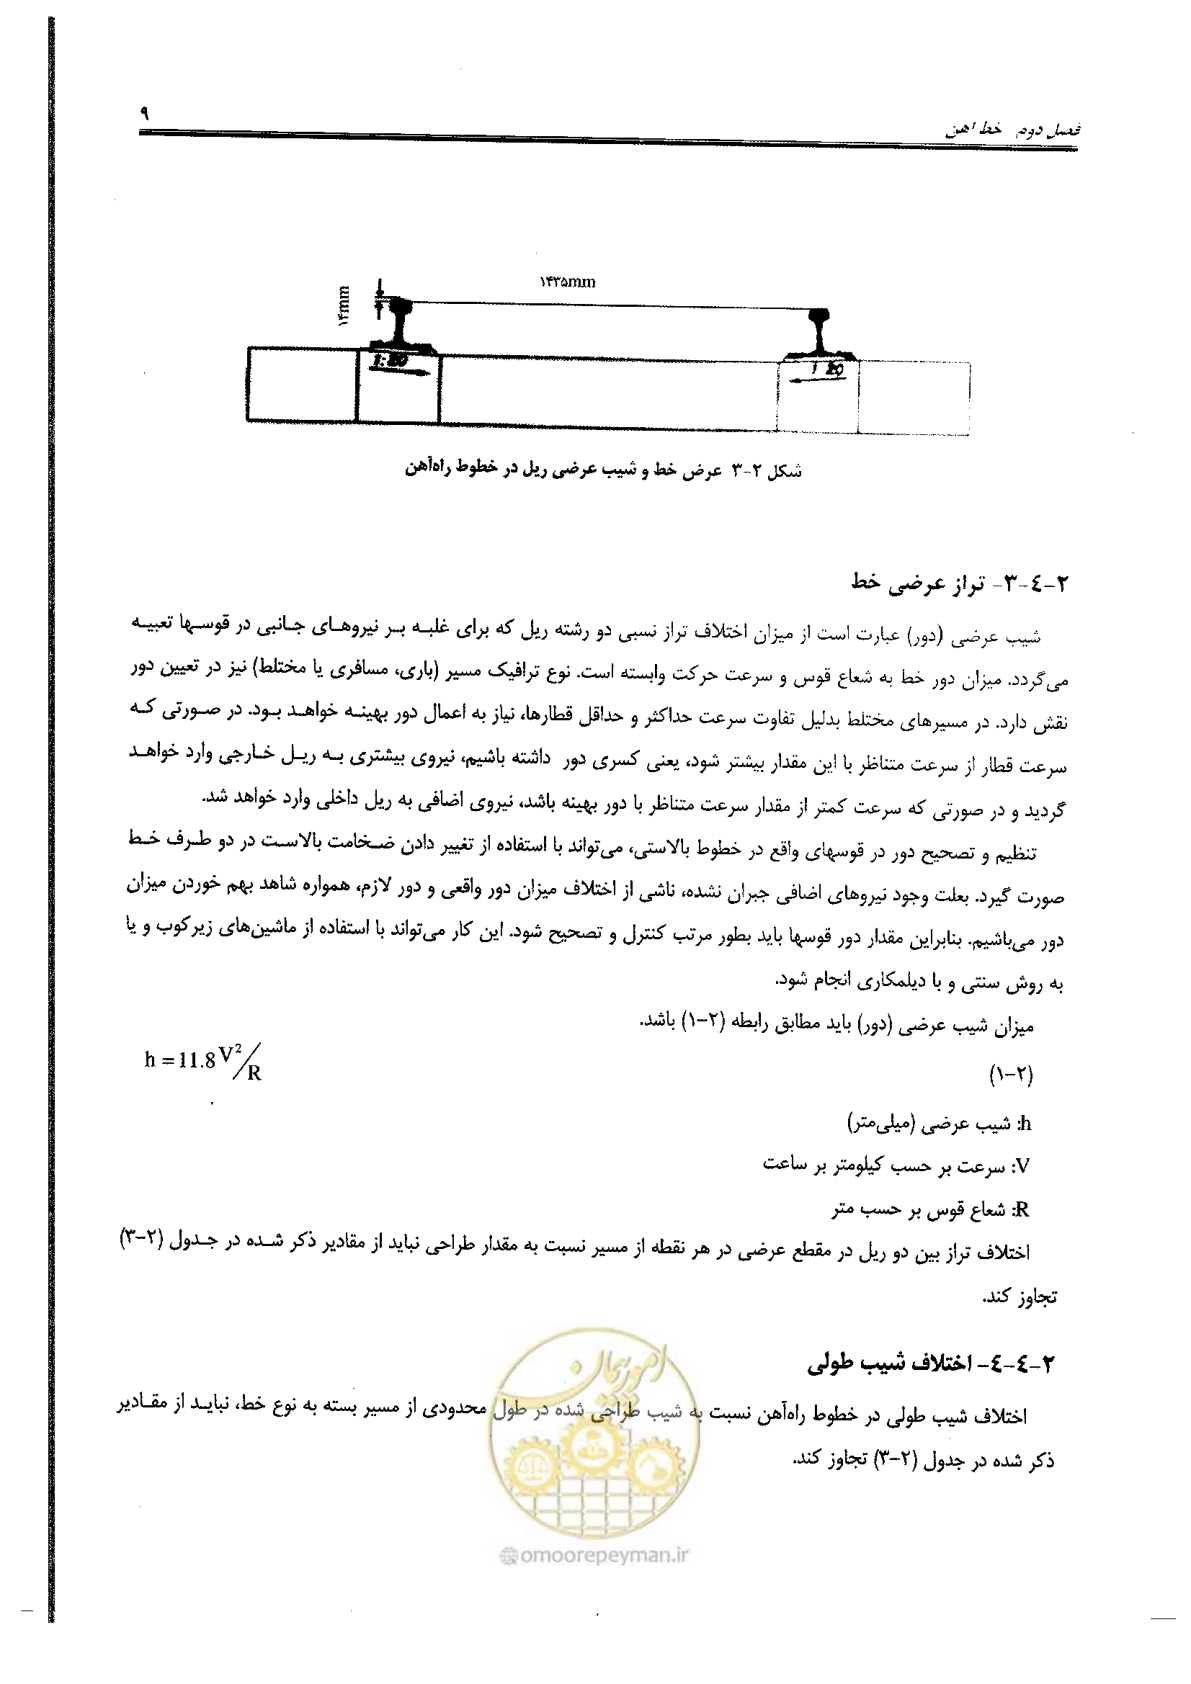 ۹
فصل دوم خط آهن
۱۴۳۵mm
۱۴mm
1:20
1 20
شکل ۲-۳ عرض خط و شیب عرضی ریل در خطوط راه‌آهن
۲-۴-۳- تراز عرضی خط
شیب عرضی (دور) عبارت است از میزان اختلاف تراز نسبی دو رشته ریل که برای غلبه بر نیروهای جانبی در قوسها تعبیه
می‌گردد. میزان دور خط به شعاع قوس و سرعت حرکت وابسته است. نوع ترافیک مسیر (باری، مسافری یا مختلط) نیز در تعیین دور
نقش دارد. در مسیرهای مختلط بدلیل تفاوت سرعت حداکثر و حداقل قطارها، نیاز به اعمال دور بهینه خواهد بود. در صورتی که
سرعت قطار از سرعت متناظر با این مقدار بیشتر شود، یعنی کسری دور داشته باشیم، نیروی بیشتری به ریل خارجی وارد خواهد
گردید و در صورتی که سرعت کمتر از مقدار سرعت متناظر با دور بهینه باشد، نیروی اضافی به ریل داخلی وارد خواهد شد.
تنظیم و تصحیح دور در قوسهای واقع در خطوط بالاستی، می‌تواند با استفاده از تغییر دادن ضخامت بالاست در دو طرف خط
صورت گیرد. بعلت وجود نیروهای اضافی جبران نشده، ناشی از اختلاف میزان دور واقعی و دور لازم، همواره شاهد بهم خوردن میزان
دور می‌باشیم. بنابراین مقدار دور قوسها باید بطور مرتب کنترل و تصحیح شود. این کار می‌تواند با استفاده از ماشین‌های زیرکوب و یا
به روش سنتی و با دیلمکاری انجام شود.
میزان شیب عرضی (دور) باید مطابق رابطه (۲-۱) باشد.
(۲-۱) h = 11.8 V²/R
h: شیب عرضی (میلی‌متر)
V: سرعت بر حسب کیلومتر بر ساعت
R: شعاع قوس بر حسب متر
اختلاف تراز بین دو ریل در مقطع عرضی در هر نقطه از مسیر نسبت به مقدار طراحی نباید از مقادیر ذکر شده در جدول (۲-۳)
تجاوز کند.
۲-۴-۴- اختلاف شیب طولی
اختلاف شیب طولی در خطوط راه‌آهن نسبت به شیب طراحی شده در طول محدودی از مسیر بسته به نوع خط، نباید از مقادیر
ذکر شده در جدول (۲-۳) تجاوز کند.
امور پیمان
@omoorepeyman.ir